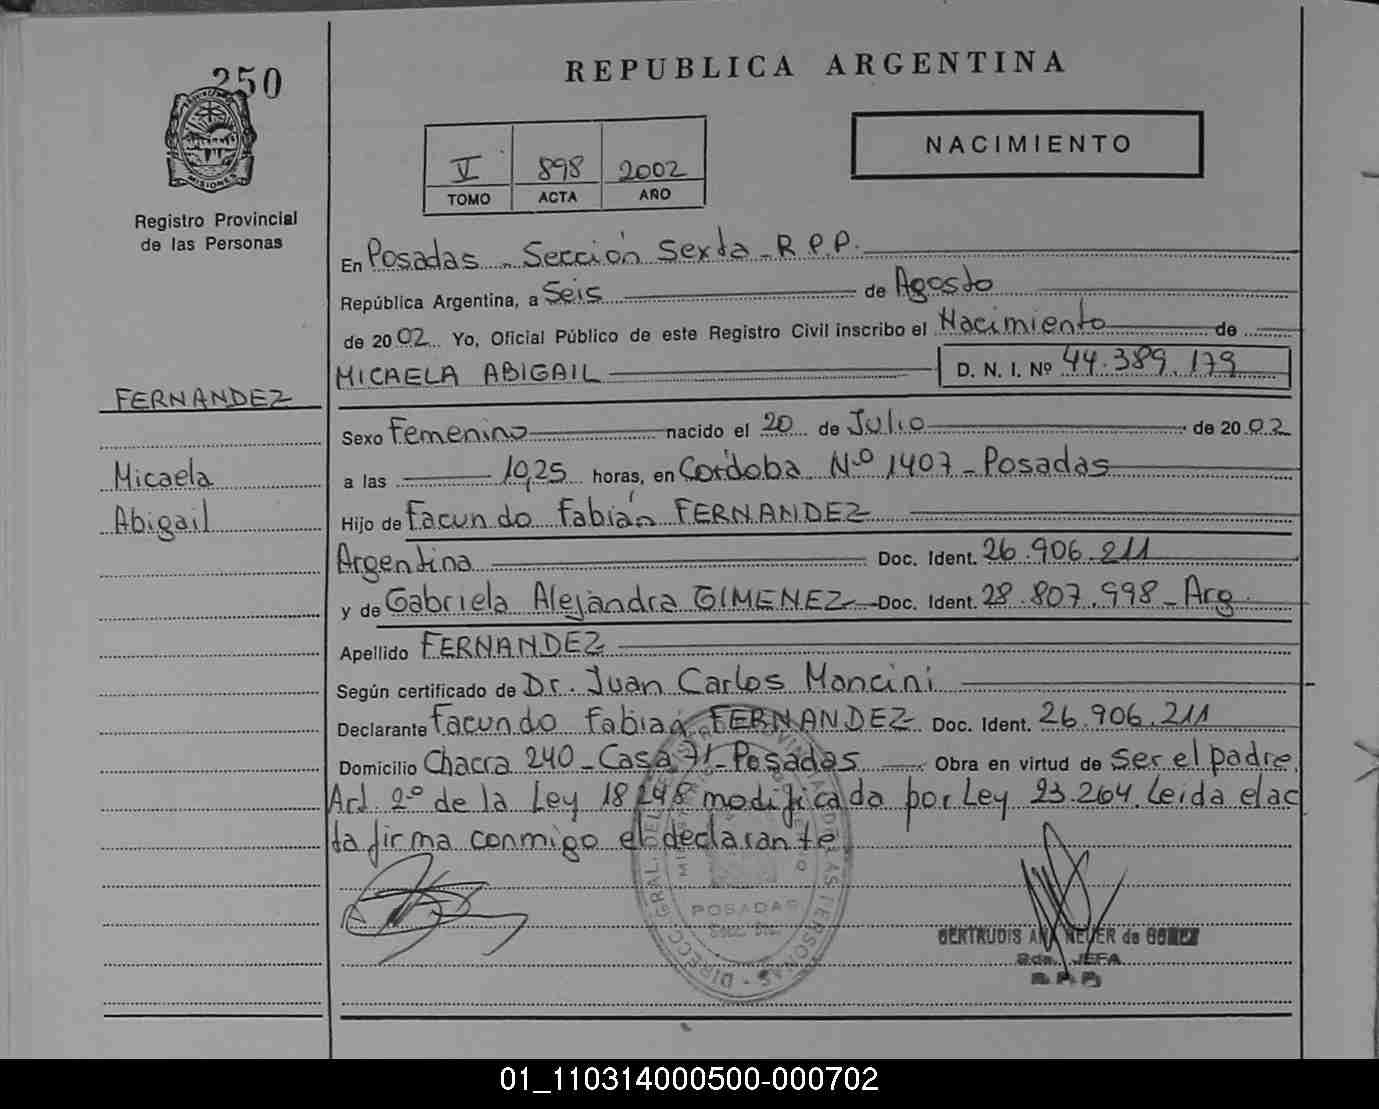 250
MISIONES
Registro Provincial
de las Personas
REPUBLICA ARGENTINA
V 898 2002
TOMO ACTA AÑO
NACIMIENTO
En Posadas - Sección Sexta - R.P.P.
República Argentina, a Seis de Agosto
de 2002 Yo, Oficial Público de este Registro Civil inscribo el Nacimiento de
MICAELA ABIGAIL D. N. I. Nº 44.389.179
FERNANDEZ
Micaela
Abigail
Sexo Femenino nacido el 20 de Julio de 2002
a las 10,25 horas, en Córdoba Nº 1407 - Posadas
Hijo de Facundo Fabián FERNANDEZ
Argentina Doc. Ident. 26.906.211
y de Gabriela Alejandra GIMENEZ Doc. Ident. 28.807.998 - Arg.
Apellido FERNANDEZ
Según certificado de Dr. Juan Carlos Mancini
Declarante Facundo Fabian FERNANDEZ Doc. Ident. 26.906.211
Domicilio Chacra 240 - Casa 71 - Posadas Obra en virtud de ser el padre.
Art. 2º de la Ley 18248 modificada por Ley 23.264. Leida el ac
ta firma conmigo el declarante
POSADAS
GERTRUDIS de
JEFA
R.P.P.
01_110314000500-000702